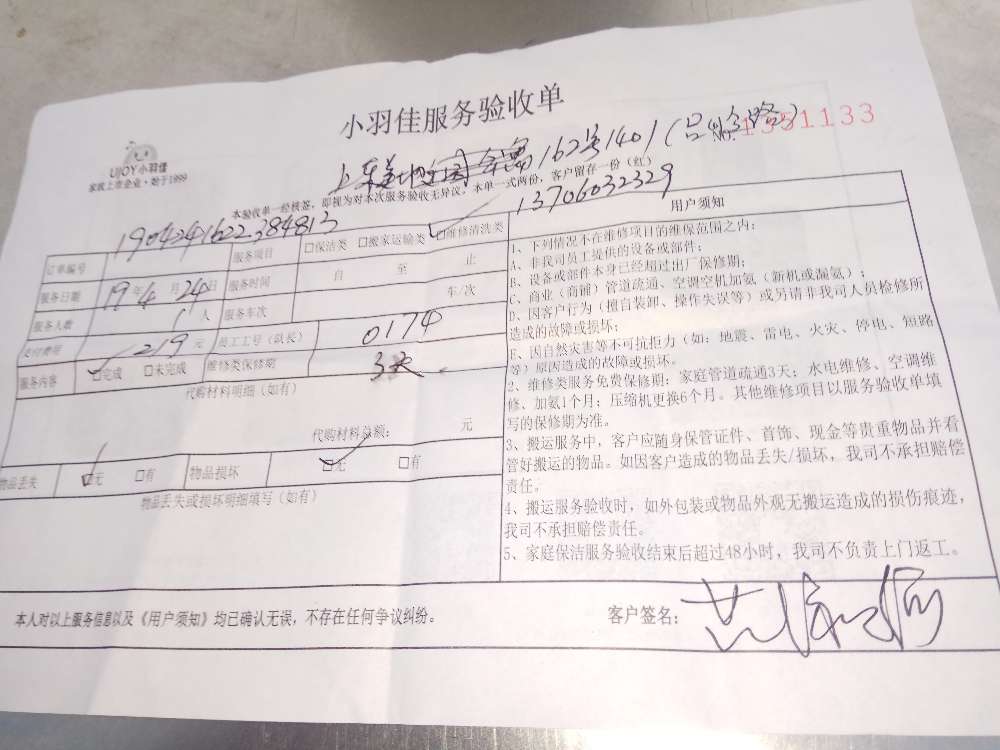 小羽佳服务验收单
1351133
UJOY小羽佳
家政上市企业·始于1999
162号1401(吕岭路)
本验收单一经核签，即视为对本次服务验收无异议。本单一式两份，客户留存一份（红）
13706032329
订单编号 1904241622384813 服务项目 □保洁类 □搬家运输类 □维修清洗类
服务日期 19年4月24日 服务时间 自 至 止
服务人数 1人 服务车次 车/次
支付费用 219元 员工工号（队长） 0174
服务内容 □完成 □未完成 维修类保修期 3天
代购材料明细（如有）
代购材料总额： 元
物品丢失 □无 □有 物品损坏 □无 □有
物品丢失或损坏明细填写（如有）
用户须知
1、下列情况不在维修项目的维保范围之内：
A、非我司员工提供的设备或部件；
B、设备或部件本身已经超过出厂保修期；
C、商业（商铺）管道疏通、空调空机加氨（新机或漏氨）；
D、因客户行为（擅自装卸、操作失误等）或另请非我司人员检修所
造成的故障或损坏；
E、因自然灾害等不可抗拒力（如：地震、雷电、火灾、停电、短路
等）原因造成的故障或损坏。
2、维修类服务免费保修期：家庭管道疏通3天；水电维修、空调维
修、加氨1个月；压缩机更换6个月。其他维修项目以服务验收单填
写的保修期为准。
3、搬运服务中，客户应随身保管证件、首饰、现金等贵重物品并看
管好搬运的物品。如因客户造成的物品丢失/损坏，我司不承担赔偿
责任。
4、搬运服务验收时，如外包装或物品外观无搬运造成的损伤痕迹，
我司不承担赔偿责任。
5、家庭保洁服务验收结束后超过48小时，我司不负责上门返工。
本人对以上服务信息以及《用户须知》均已确认无误，不存在任何争议纠纷。
客户签名：